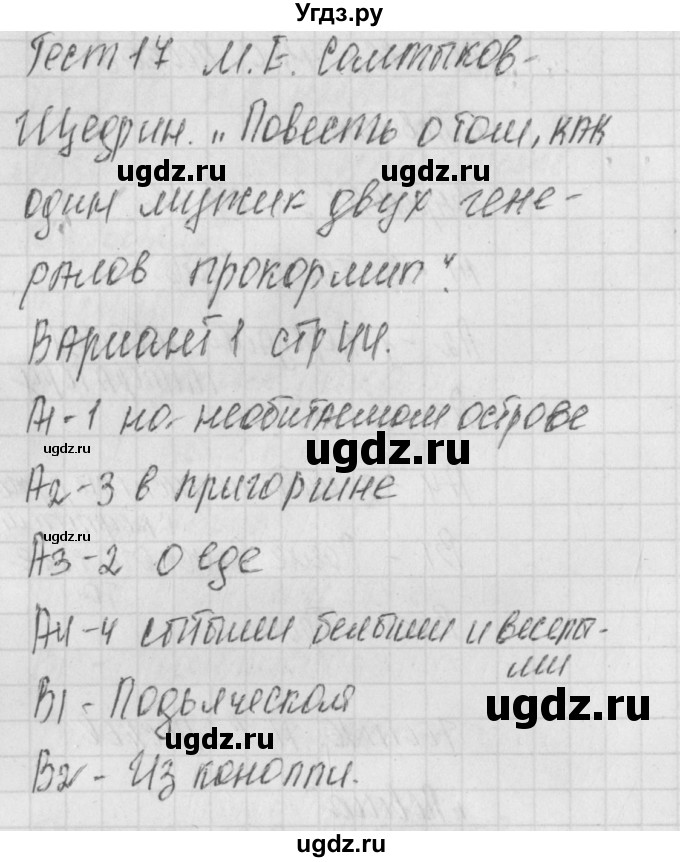 Угдз.ру
Тест 17 М.Е. Салтыков-
Щедрин. „Повесть о том, как
ugdz.ru ugdz.ru
один мужик двух гене-
ралов прокормил".
Вариант 1 стр 44.
А1-1 на необитаемом острове
ugdz.ru ugdz.ru
А2-3 в пригоршне
ugdz.ru
А3-2 о еде
А4-4 сытыми белыми и веселы-
ми
В1 - Подьяческой
ugdz.ru ugdz.ru
В2 - Из конопли.
ugdz.ru